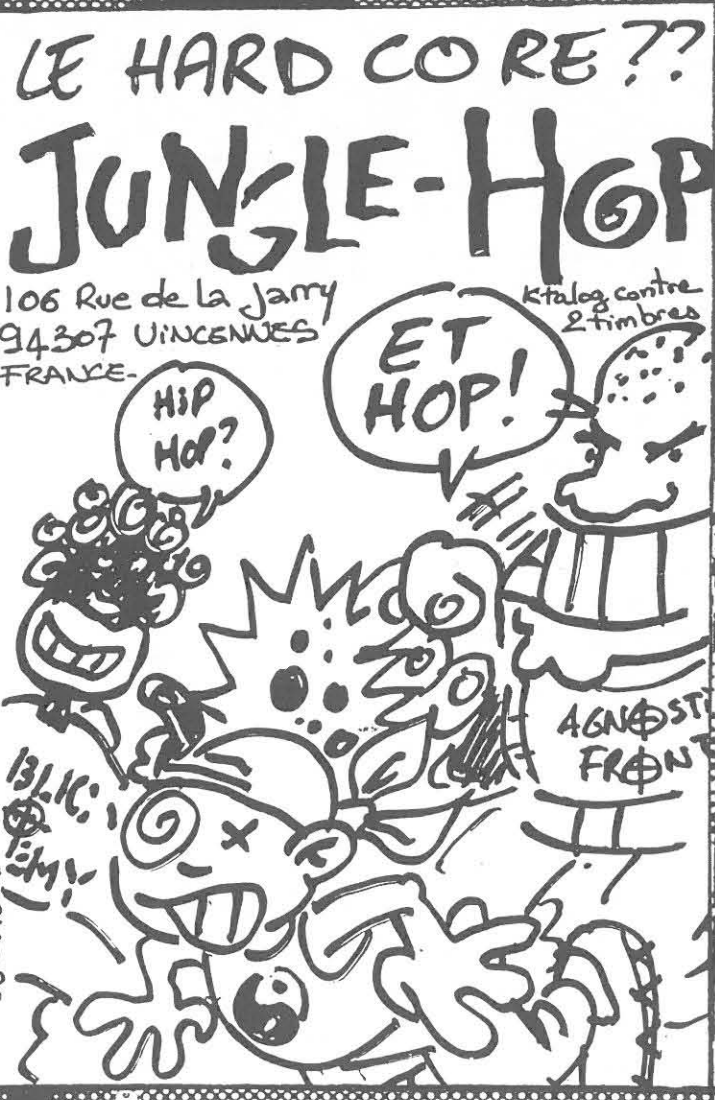 LE HARD CORE??
JUNGLE-HOP
106 Rue de la Jarry
94307 ViNCENNES
FRANCE-
Ktalog contre
2 timbres
ET
HOP!
HiP
HOP?
AGNOSTI
FRONT